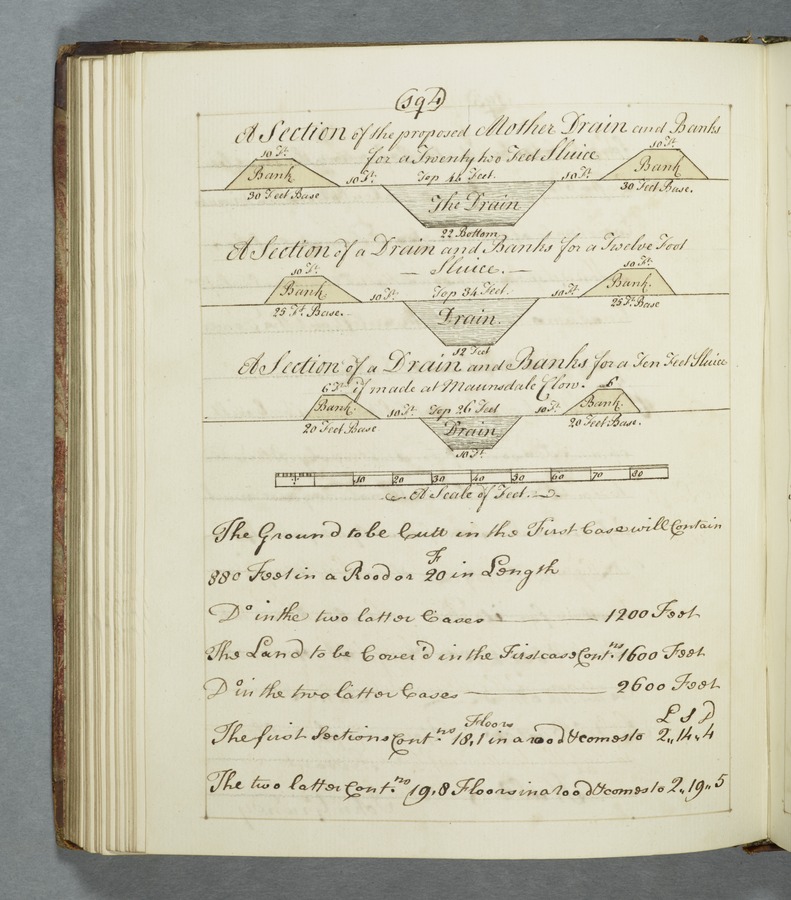 (194)
A Section of the proposed Mother Drain and Banks
for a Twenty two Feet Sluice
10 Ft. 10 Ft.
Bank 10 Ft. Top 44 Feet. 10 Ft. Bank
30 Feet Base The Drain 30 Feet Base.
22 Bottom
A Section of a Drain and Banks for a Twelve Foot
— Sluice. —
10 Ft. 10 Ft.
Bank 10 Ft. Top 34 Feet. 10 Ft. Bank.
25 Ft. Base. Drain. 25 Ft. Base
12 Feet
A Section of a Drain and Banks for a Ten Feet Sluice
if made at Maunsdale Clow.
6 Ft. 6
Bank. 10 Ft. Top 26 Feet 10 Ft. Bank.
20 Feet Base Drain 20 Feet Base.
10 Ft.
10 20 30 40 50 60 70 80
A Scale of Feet.
The Ground to be Cutt in the First Case will Contain
880 Feet in a Rood or 20 F in Length
Do in the two latter Cases — 1200 Feet
The Land to be Cover'd in the First case Cont.ng 1600 Feet
Do in the two latter Cases — 2600 Feet
L S D
The first Sections Cont.ng 18,1 Floors in a rood & comes to 2,,14,,4
The two latter Cont.ng 19,8 Floors in a rood & comes to 2,,19,,5